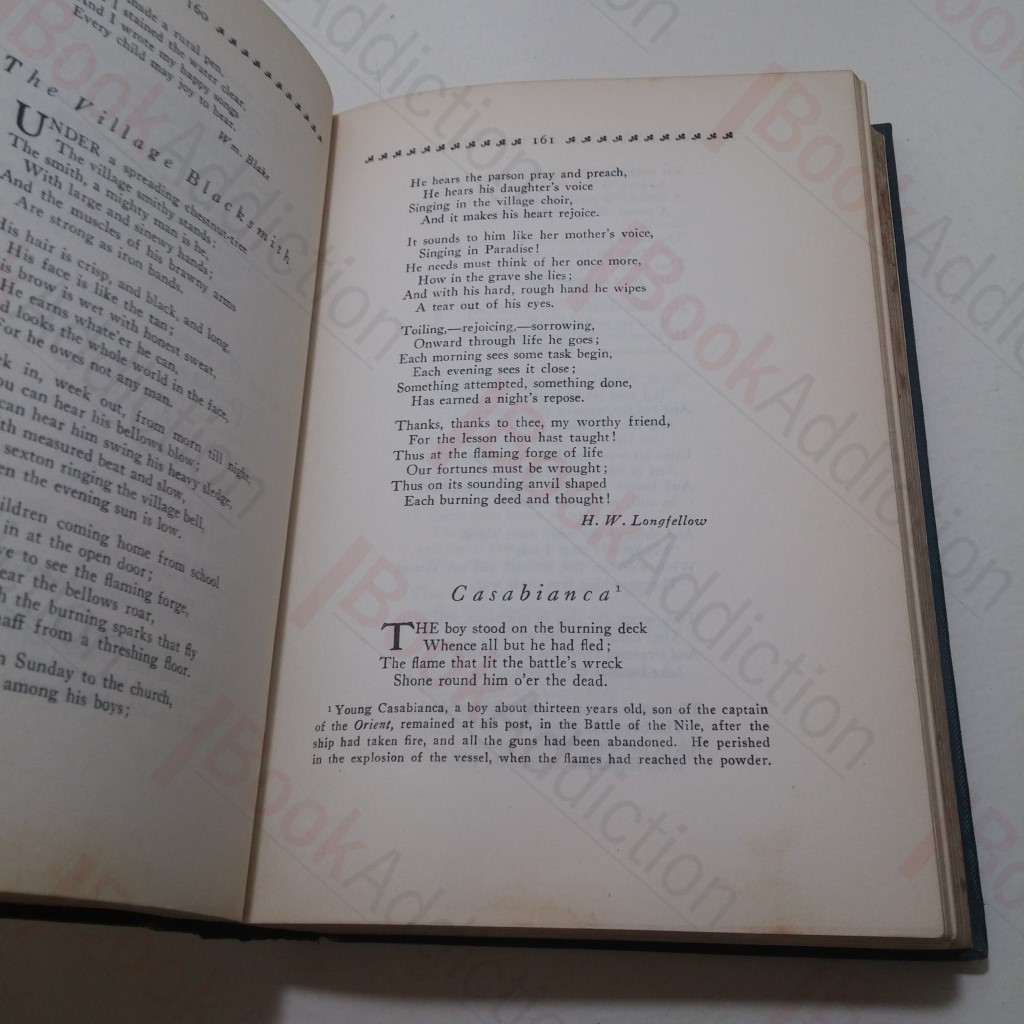 160
made a rural pen,
I stained the water clear,
And I wrote my happy songs
Every child may joy to hear.
Wm. Blake
The Village Blacksmith
UNDER a spreading chestnut-tree
The village smithy stands;
The smith, a mighty man is he,
With large and sinewy hands;
And the muscles of his brawny arms
Are strong as iron bands.
His hair is crisp, and black, and long,
His face is like the tan;
is brow is wet with honest sweat,
He earns whate'er he can,
d looks the whole world in the face,
For he owes not any man.
k in, week out, from morn till night,
ou can hear his bellows blow;
can hear him swing his heavy sledge,
th measured beat and slow,
sexton ringing the village bell,
en the evening sun is low.
ildren coming home from school
in at the open door;
ve to see the flaming forge,
ear the bellows roar,
h the burning sparks that fly
haff from a threshing floor.
n Sunday to the church,
among his boys;
161
He hears the parson pray and preach,
He hears his daughter's voice
Singing in the village choir,
And it makes his heart rejoice.
It sounds to him like her mother's voice,
Singing in Paradise!
He needs must think of her once more,
How in the grave she lies;
And with his hard, rough hand he wipes
A tear out of his eyes.
Toiling,—rejoicing,—sorrowing,
Onward through life he goes;
Each morning sees some task begin,
Each evening sees it close;
Something attempted, something done,
Has earned a night's repose.
Thanks, thanks to thee, my worthy friend,
For the lesson thou hast taught!
Thus at the flaming forge of life
Our fortunes must be wrought;
Thus on its sounding anvil shaped
Each burning deed and thought!
H. W. Longfellow
Casabianca¹
THE boy stood on the burning deck
Whence all but he had fled;
The flame that lit the battle's wreck
Shone round him o'er the dead.
¹ Young Casabianca, a boy about thirteen years old, son of the captain
of the Orient, remained at his post, in the Battle of the Nile, after the
ship had taken fire, and all the guns had been abandoned. He perished
in the explosion of the vessel, when the flames had reached the powder.
BookAddiction